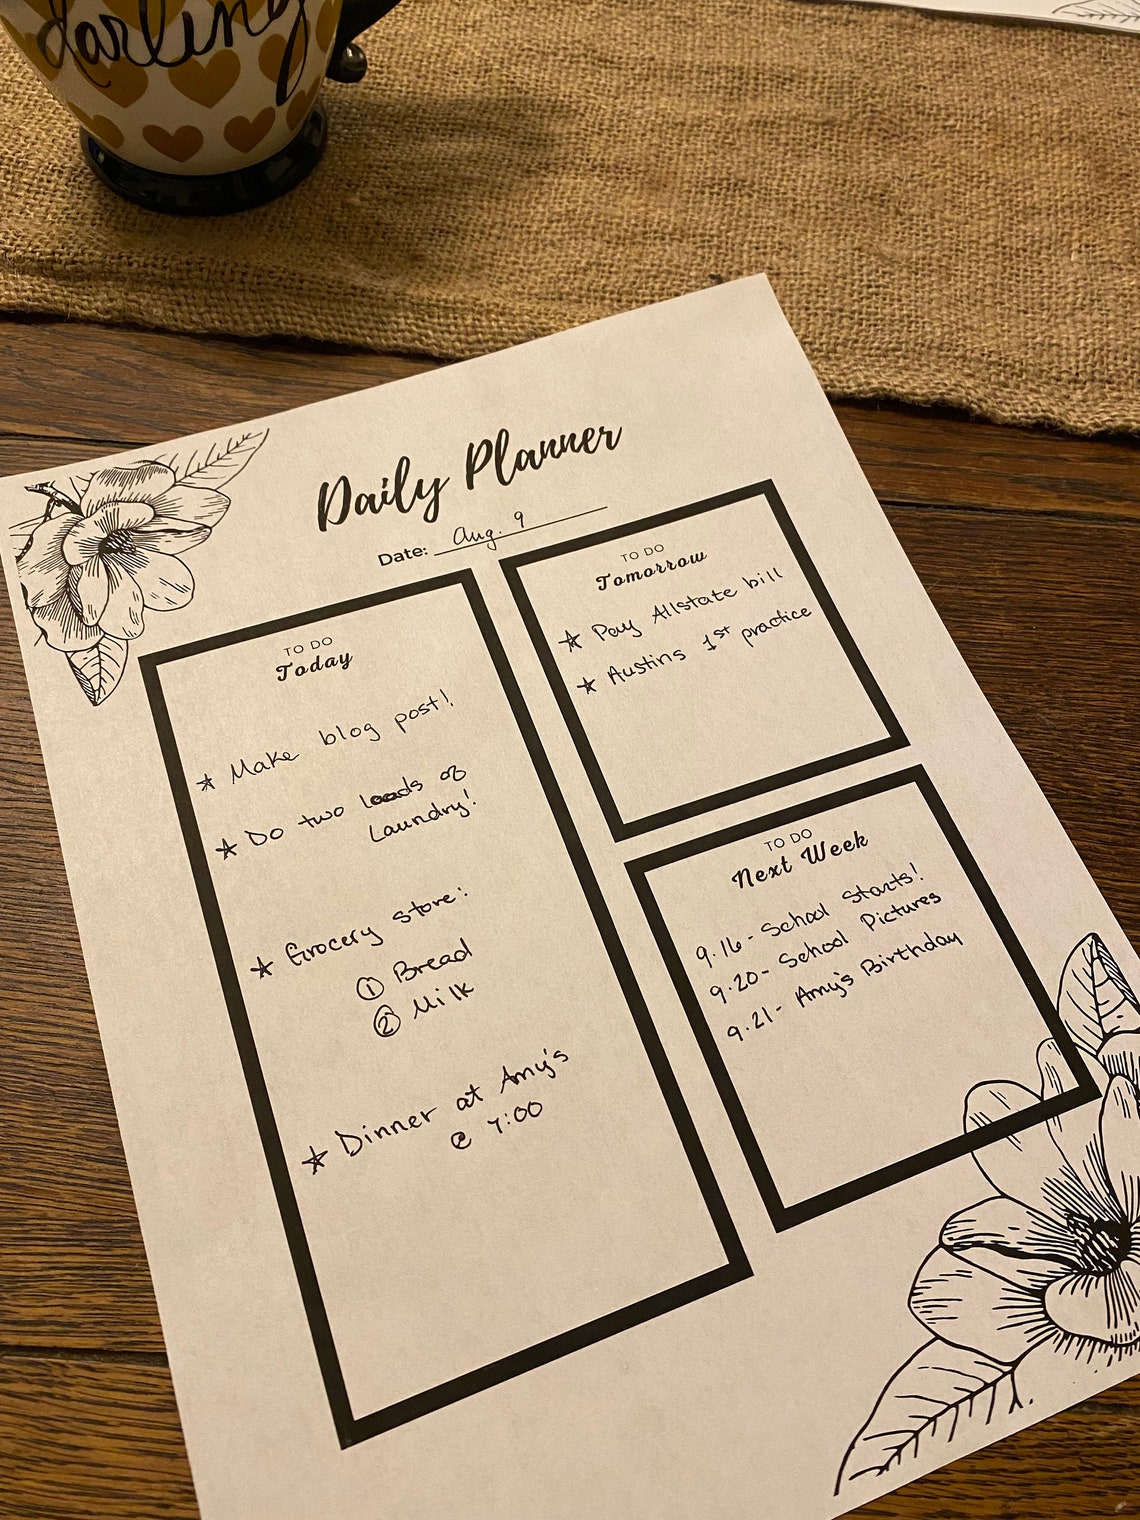 darling
Daily Planner
Date: Aug. 9
TO DO
Today
★ Make blog post!
★ Do two loads of
Laundry!
★ Grocery store:
① Bread
② Milk
★ Dinner at Amy's
@ 7:00
TO DO
Tomorrow
★ Pay Allstate bill
★ Austins 1st practice
TO DO
Next Week
9.16 - School Starts!
9.20 - School Pictures
9.21 - Amy's Birthday